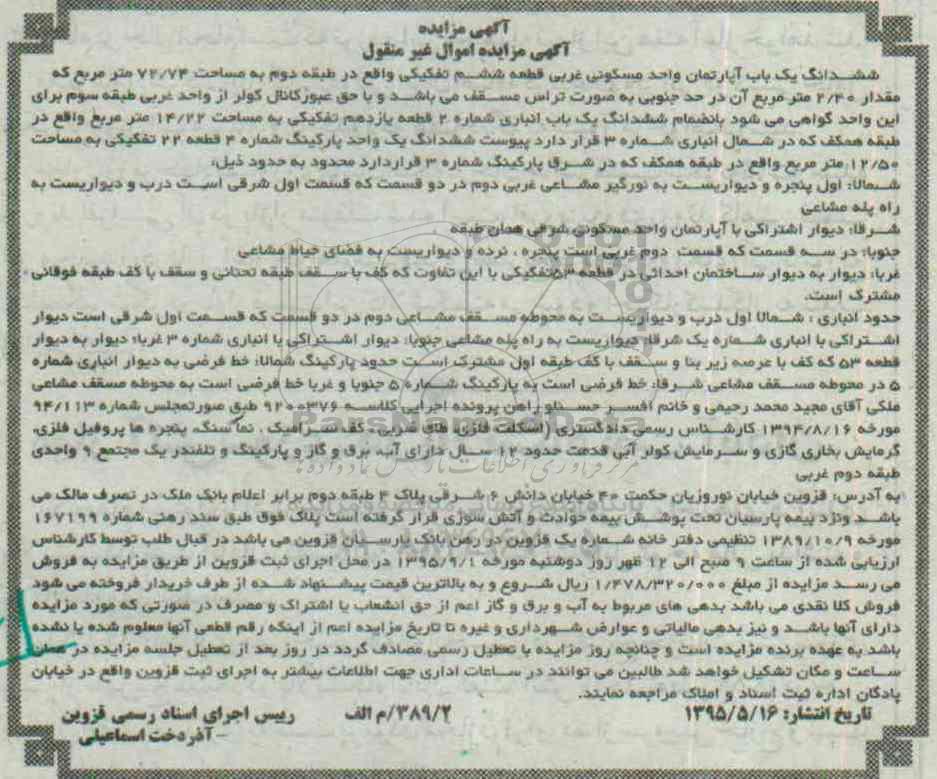 آگهی مزایده
آگهی مزایده اموال غیر منقول
ششدانگ یک باب آپارتمان واحد مسکونی غربی قطعه ششم تفکیکی واقع در طبقه دوم به مساحت ۷۲/۷۴ متر مربع که
مقدار ۲/۴۰ متر مربع آن در حد جنوبی به صورت تراس مسقف می باشد و با حق عبورکانال کولر از واحد غربی طبقه سوم برای
این واحد گواهی می شود بانضمام ششدانگ یک باب انباری شماره ۲ قطعه یازدهم تفکیکی به مساحت ۱۴/۲۲ متر مربع واقع در
طبقه همکف که در شمال انباری شماره ۳ قرار دارد پیوست ششدانگ یک واحد پارکینگ شماره ۴ قطعه ۲۲ تفکیکی به مساحت
۱۲/۵۰ متر مربع واقع در طبقه همکف که در شرق پارکینگ شماره ۳ قراردارد محدود به حدود ذیل:
شمالا: اول پنجره و دیواریست به نورگیر مشاعی غربی دوم در دو قسمت که قسمت اول شرقی است درب و دیواریست به
راه پله مشاعی
شرقا: دیوار اشتراکی با آپارتمان واحد مسکونی شرقی همان طبقه
جنوبا: در سه قسمت که قسمت دوم غربی است پنجره ، نرده و دیواریست به فضای حیاط مشاعی
غربا: دیوار به دیوار ساختمان احداثی در قطعه ۵۳تفکیکی با این تفاوت که کف با سقف طبقه تحتانی و سقف با کف طبقه فوقانی
مشترک است.
حدود انباری : شمالا اول درب و دیواریست به محوطه مسقف مشاعی دوم در دو قسمت که قسمت اول شرقی است دیوار
اشتراکی با انباری شماره یک شرقا: دیواریست به راه پله مشاعی جنوبا: دیوار اشتراکی با انباری شماره ۳ غربا: دیوار به دیوار
قطعه ۵۳ که کف با عرصه زیر بنا و سقف با کف طبقه اول مشترک است حدود پارکینگ شمالا: خط فرضی به دیوار انباری شماره
۵ در محوطه مسقف مشاعی شرقا: خط فرضی است به پارکینگ شماره ۵ جنوبا و غربا خط فرضی است به محوطه مسقف مشاعی
ملکی آقای مجید محمد رحیمی و خانم افسر حسنلو راهن پرونده اجرایی کلاسه ۹۲۰۰۳۷۶ طبق صورتمجلس شماره ۹۴/۱۱۳
مورخه ۱۳۹۴/۸/۱۶ کارشناس رسمی دادگستری (اسکلت فلزی، های سربی، کف سرامیک ، نما سنگ، پنجره ها پروفیل فلزی،
گرمایش بخاری گازی و سرمایش کولر آبی قدمت حدود ۱۲ سال دارای آب، برق و گاز و پارکینگ و تلفندر یک مجتمع ۹ واحدی
طبقه دوم غربی
به آدرس: قزوین خیابان نوروزیان حکمت ۴۰ خیابان دانش ۶ شرقی پلاک ۴ طبقه دوم برابر اعلام بانک ملک در تصرف مالک می
باشد ونزد بیمه پارسیان تحت پوشش بیمه حوادث و آتش سوزی قرار گرفته است پلاک فوق طبق سند رهنی شماره ۱۶۷۱۹۹
مورخه ۱۳۸۹/۱۰/۹ تنظیمی دفتر خانه شماره یک قزوین در رهن بانک پارسیان قزوین می باشد در قبال طلب توسط کارشناس
ارزیابی شده از ساعت ۹ صبح الی ۱۲ ظهر روز دوشنبه مورخه ۱۳۹۵/۹/۱ در محل اجرای ثبت قزوین از طریق مزایده به فروش
می رسد مزایده از مبلغ ۱/۴۷۸/۳۲۰/۰۰۰ ریال شروع و به بالاترین قیمت پیشنهاد شده از طرف خریدار فروخته می شود
فروش کلا نقدی می باشد بدهی های مربوط به آب و برق و گاز اعم از حق انشعاب یا اشتراک و مصرف در صورتی که مورد مزایده
دارای آنها باشد و نیز بدهی مالیاتی و عوارض شهرداری و غیره تا تاریخ مزایده اعم از اینکه رقم قطعی آنها معلوم شده یا نشده
باشد به عهده برنده مزایده است و چنانچه روز مزایده با تعطیل رسمی مصادف گردد در روز بعد از تعطیل جلسه مزایده در همان
ساعت و مکان تشکیل خواهد شد طالبین می توانند در ساعات اداری جهت اطلاعات بیشتر به اجرای ثبت قزوین واقع در خیابان
پادگان اداره ثبت اسناد و املاک مراجعه نمایند.
تاریخ انتشار: ۱۳۹۵/۵/۱۶ ۳۸۹/۲/م الف رییس اجرای اسناد رسمی قزوین
-آذردخت اسماعیلی